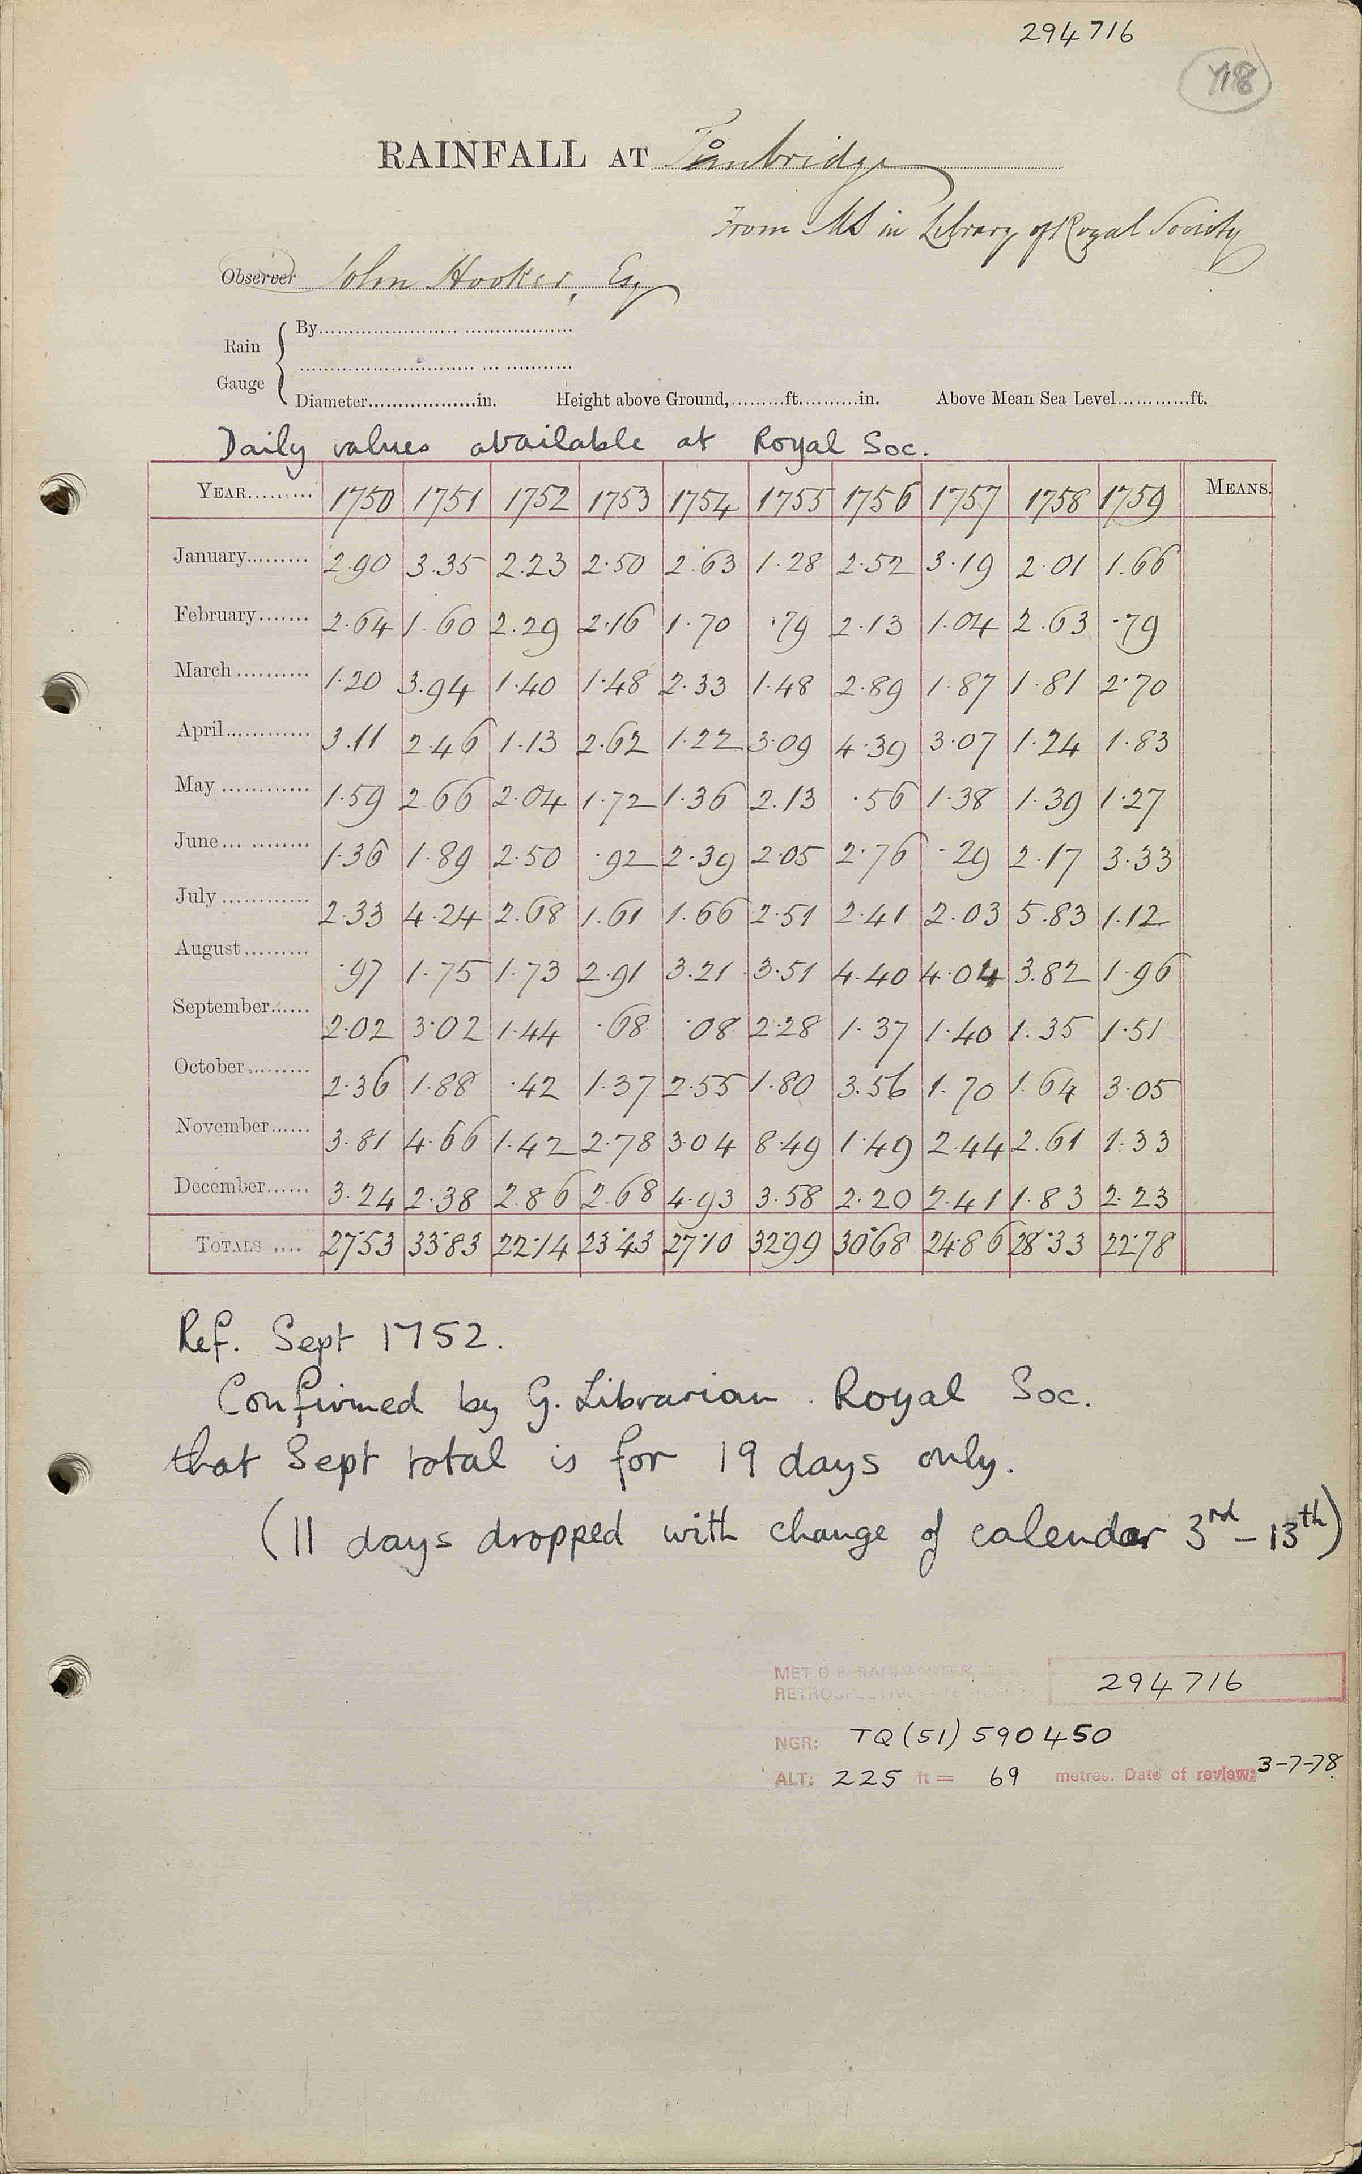 294716
718
RAINFALL AT Tonbridge
From MS in Library of Royal Society
Observer John Hooker, Esq
Rain Gauge
By
Diameter in. Height above Ground, ft. in. Above Mean Sea Level ft.
Daily values available at Royal Soc.
YEAR 1750 1751 1752 1753 1754 1755 1756 1757 1758 1759 MEANS.
January 2.90 3.35 2.23 2.50 2.63 1.28 2.52 3.19 2.01 1.66
February 2.64 1.60 2.29 2.16 1.70 .79 2.13 1.04 2.63 .79
March 1.20 3.94 1.40 1.48 2.33 1.48 2.89 1.87 1.81 2.70
April 3.11 2.46 1.13 2.62 1.22 3.09 4.39 3.07 1.24 1.83
May 1.59 2.66 2.04 1.72 1.36 2.13 .56 1.38 1.39 1.27
June 1.36 1.89 2.50 .92 2.39 2.05 2.76 .29 2.17 3.33
July 2.33 4.24 2.68 1.61 1.66 2.51 2.41 2.03 5.83 1.12
August .97 1.75 1.73 2.91 3.21 3.51 4.40 4.04 3.82 1.96
September 2.02 3.02 1.44 .68 .08 2.28 1.37 1.40 1.35 1.51
October 2.36 1.88 .42 1.37 2.55 1.80 3.56 1.70 1.64 3.05
November 3.81 4.66 1.42 2.78 3.04 8.49 1.49 2.44 2.61 1.33
December 3.24 2.38 2.86 2.68 4.93 3.58 2.20 2.41 1.83 2.23
TOTALS 27.53 33.83 22.14 23.43 27.10 32.99 30.68 24.86 28.33 22.78
Ref. Sept 1752.
Confirmed by G. Librarian. Royal Soc.
that Sept total is for 19 days only.
(11 days dropped with change of calendar 3rd - 13th)
MET O 8 RAINMASTER
RETROSPECTIVE 294716
NGR: TQ(51) 590450
ALT: 225 ft = 69 metres. Date of review: 3-7-78